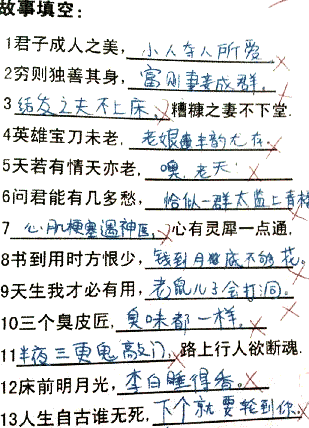 故事填空:
1君子成人之美，小人夺人所爱
2穷则独善其身，富则妻妾成群。
3结发之夫不上床，糟糠之妻不下堂.
4英雄宝刀未老，老娘丰韵尤存。
5天若有情天亦老，噢，老天
6问君能有几多愁，恰似一群太监上青
7心肌梗塞遇神医，心有灵犀一点通.
8书到用时方恨少，钱到月底不够花。
9天生我才必有用，老鼠儿子会打洞。
10三个臭皮匠，臭味都一样。
11半夜三更鬼敲门，路上行人欲断魂.
12床前明月光，李白睡得香。
13人生自古谁无死，下个就要轮到你